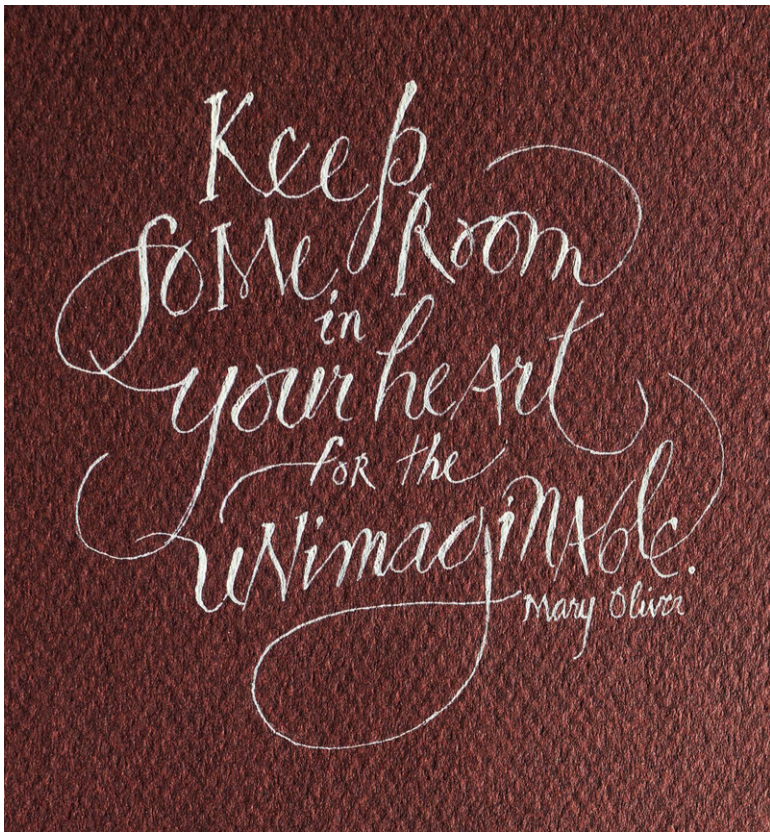 Keep
SOMe Room
in
your heArt
foR the
uNimagiNAble.
Mary Oliver